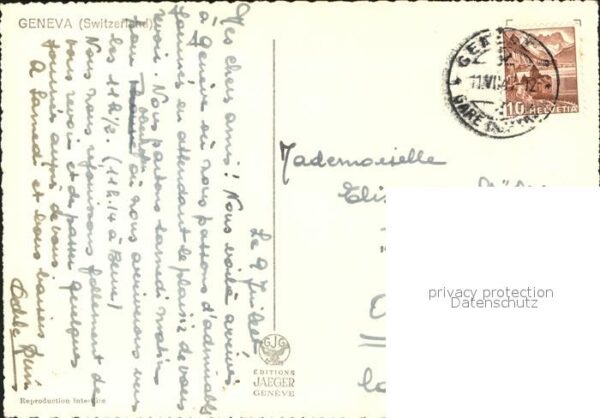 GENEVA (Switzerland)
Le 9 juillet
Mes chers amis! Nous voilà arrivés
à Genève où nous passons d'admirables
journées en attendant le plaisir de vous
revoir. Nous partons samedi matin
pour où nous arriverons vers
les 11h½. (11h.14 à Berne)
Nous nous réjouissons follement de
vous revoir et de passer quelques
journées auprès de vous
A samedi et bons baisers
Mademoiselle
GENÈVE
GARE
10 HELVETIA
GJG
EDITIONS
JAEGER
GENÈVE
Reproduction interdite
privacy protection
Datenschutz